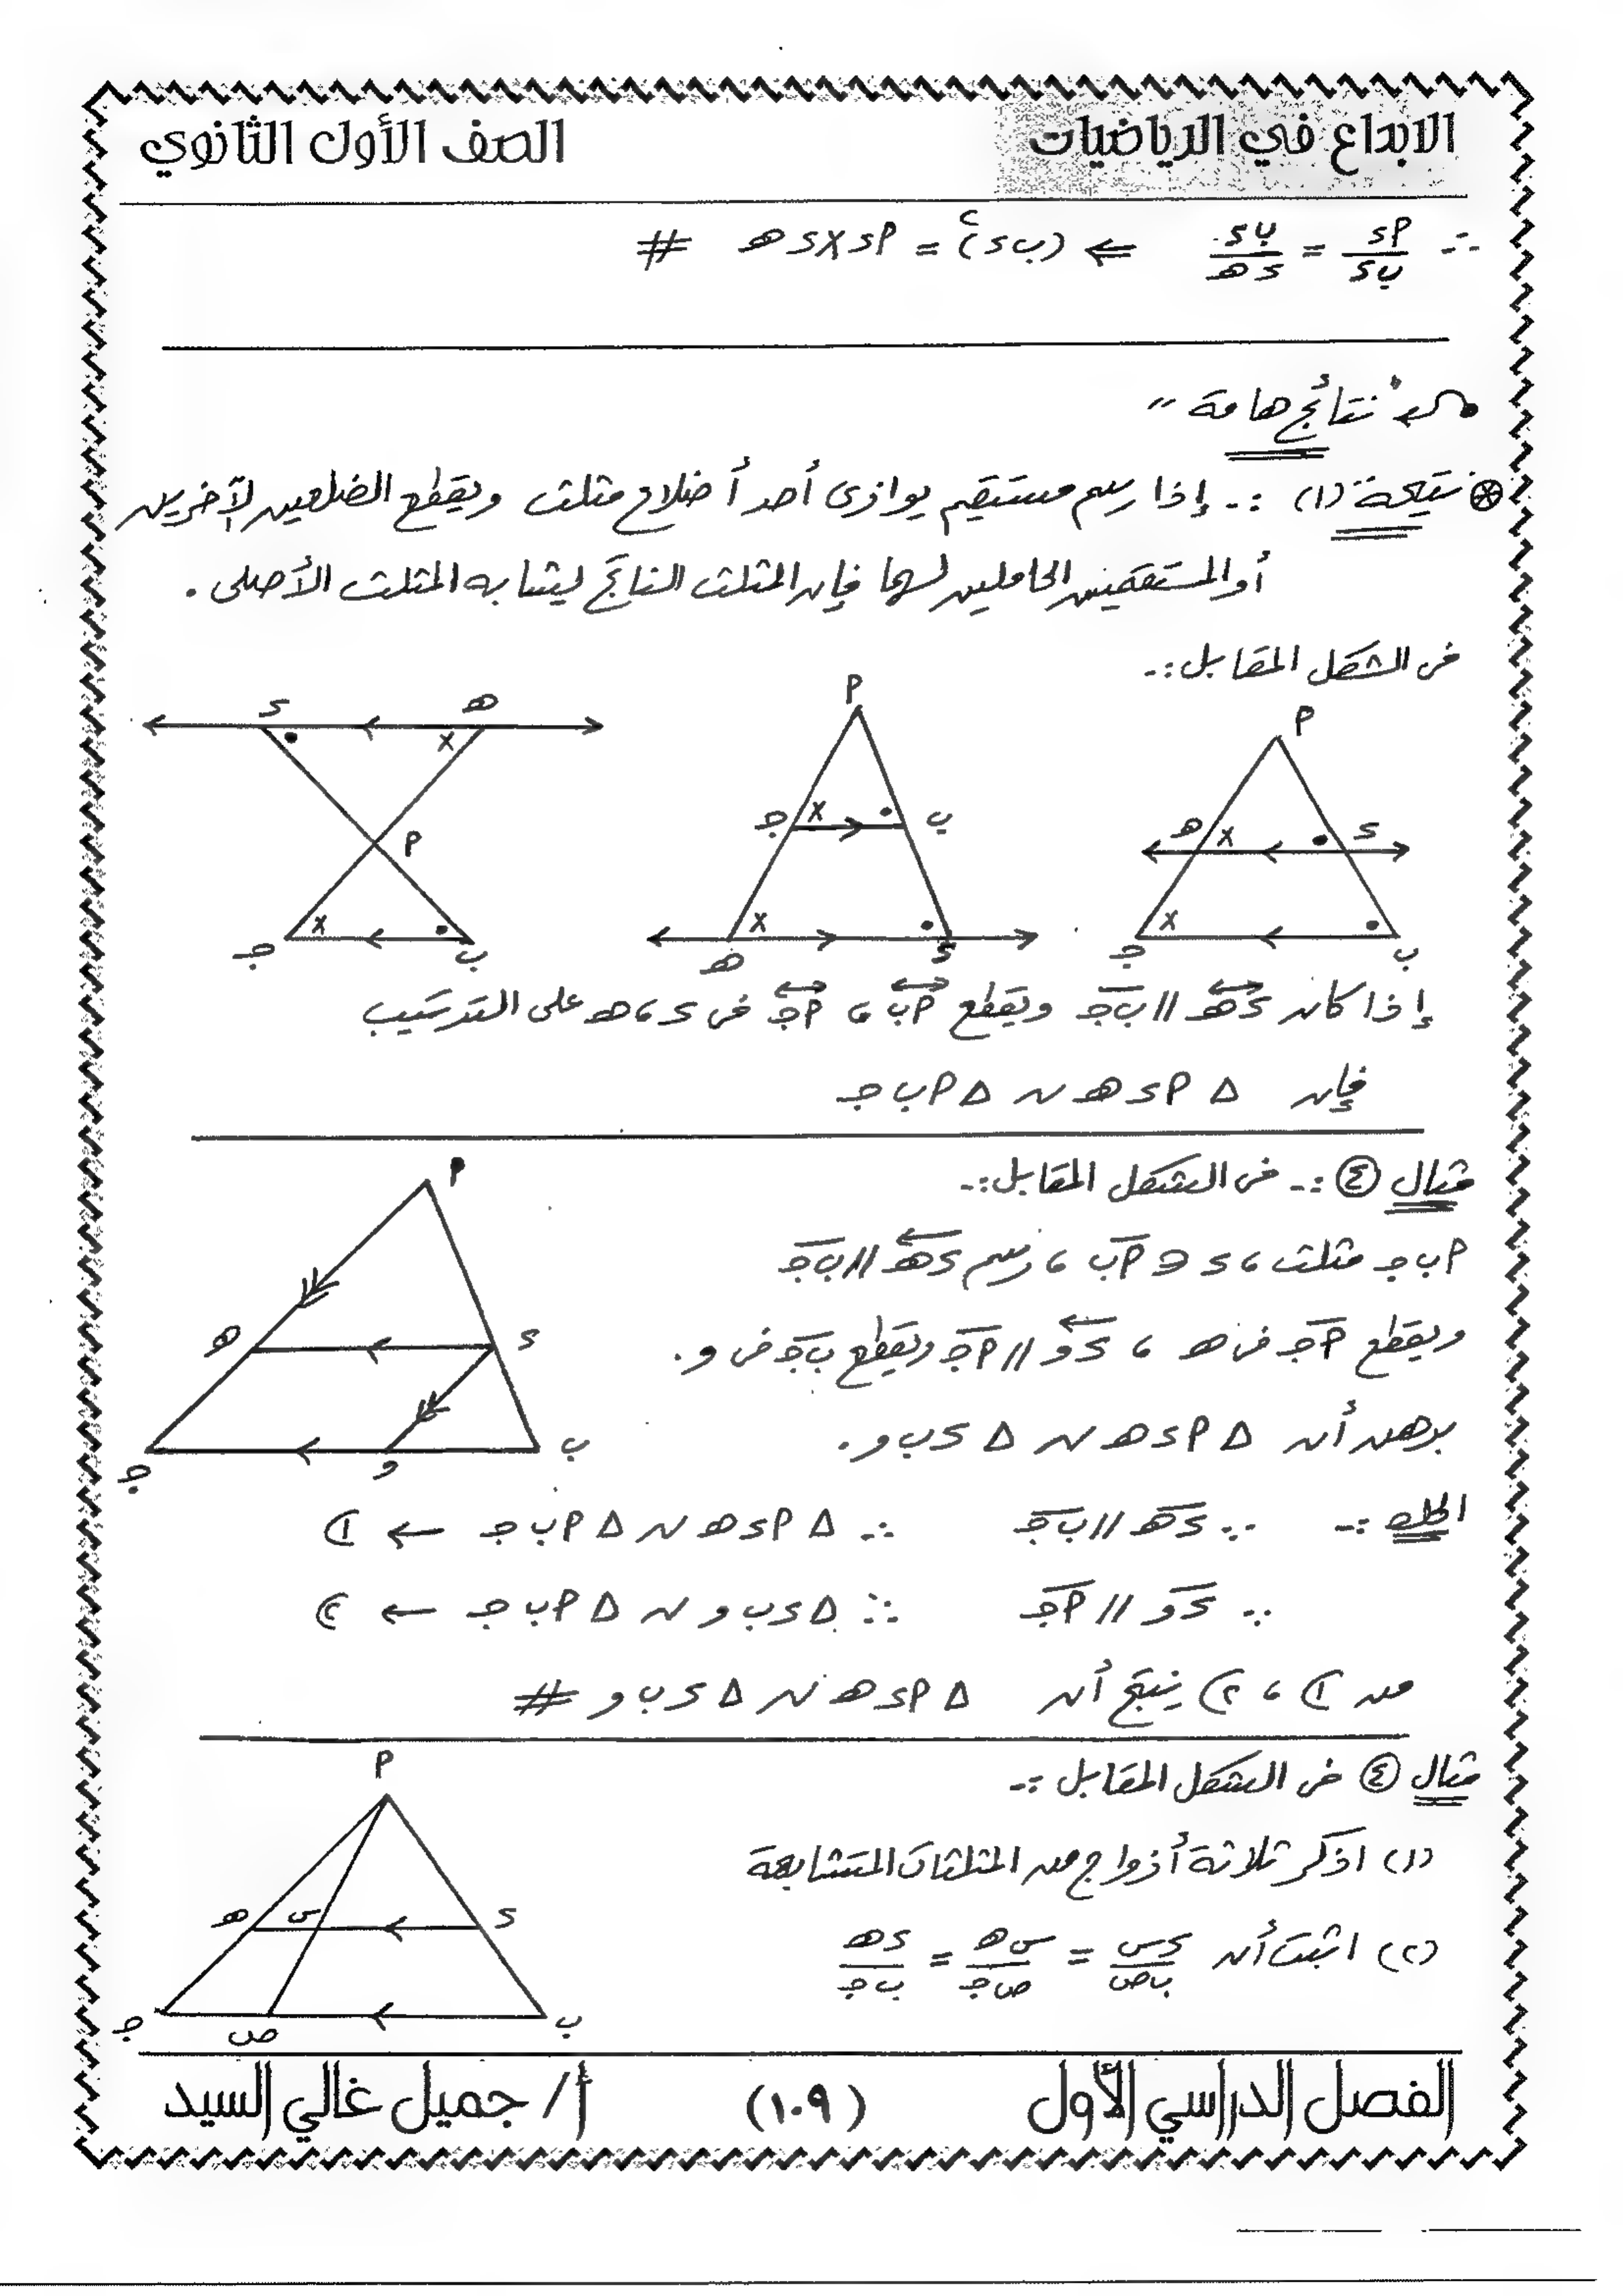 الابداع في الرياضيات الصف الأول الثانوي
∴ أد/ب د = ب د/د هـ ⇐ (ب د)² = أد × د هـ #
"نتائج هامة"
نتيجة (١) :- إذا رسم مستقيم يوازى أحد أضلاع مثلث ويقطع الضلعين الآخرين
أو المستقيمين الحاملين لهما فإن المثلث الناتج يشابه المثلث الأصلى .
فى الشكل المقابل :-
د هـ أ
هـ د أ ج ب
أ ج ب هـ د
أ ج ب د هـ
إذا كان د هـ // ب ج ويقطع أ ب ، أ ج فى د ، هـ على الترتيب
فإن △ أ د هـ ~ △ أ ب ج
مثال ④ :- فى الشكل المقابل :-
أ ب ج مثلث ، د ∈ أ ب ، رسم د هـ // ب ج
ويقطع أ ج فى هـ ، د و // أ ج ويقطع ب ج فى و .
برهن أن △ أ د هـ ~ △ د ب و .
أ هـ د ج و ب
الحل :- ∵ د هـ // ب ج ∴ △ أ د هـ ~ △ أ ب ج ← ①
∵ د و // أ ج ∴ △ د ب و ~ △ أ ب ج ← ②
من ① ، ② ينتج أن △ أ د هـ ~ △ د ب و #
مثال ④ فى الشكل المقابل :-
(١) اذكر ثلاثة أزواج من المثلثات المتشابهة
(٢) اثبت أن د س/ب ص = س هـ/ص ج = د هـ/ب ج
أ هـ س د ج ص ب
الفصل الدراسي الأول (١٠٩) أ/ جميل غالي السيد